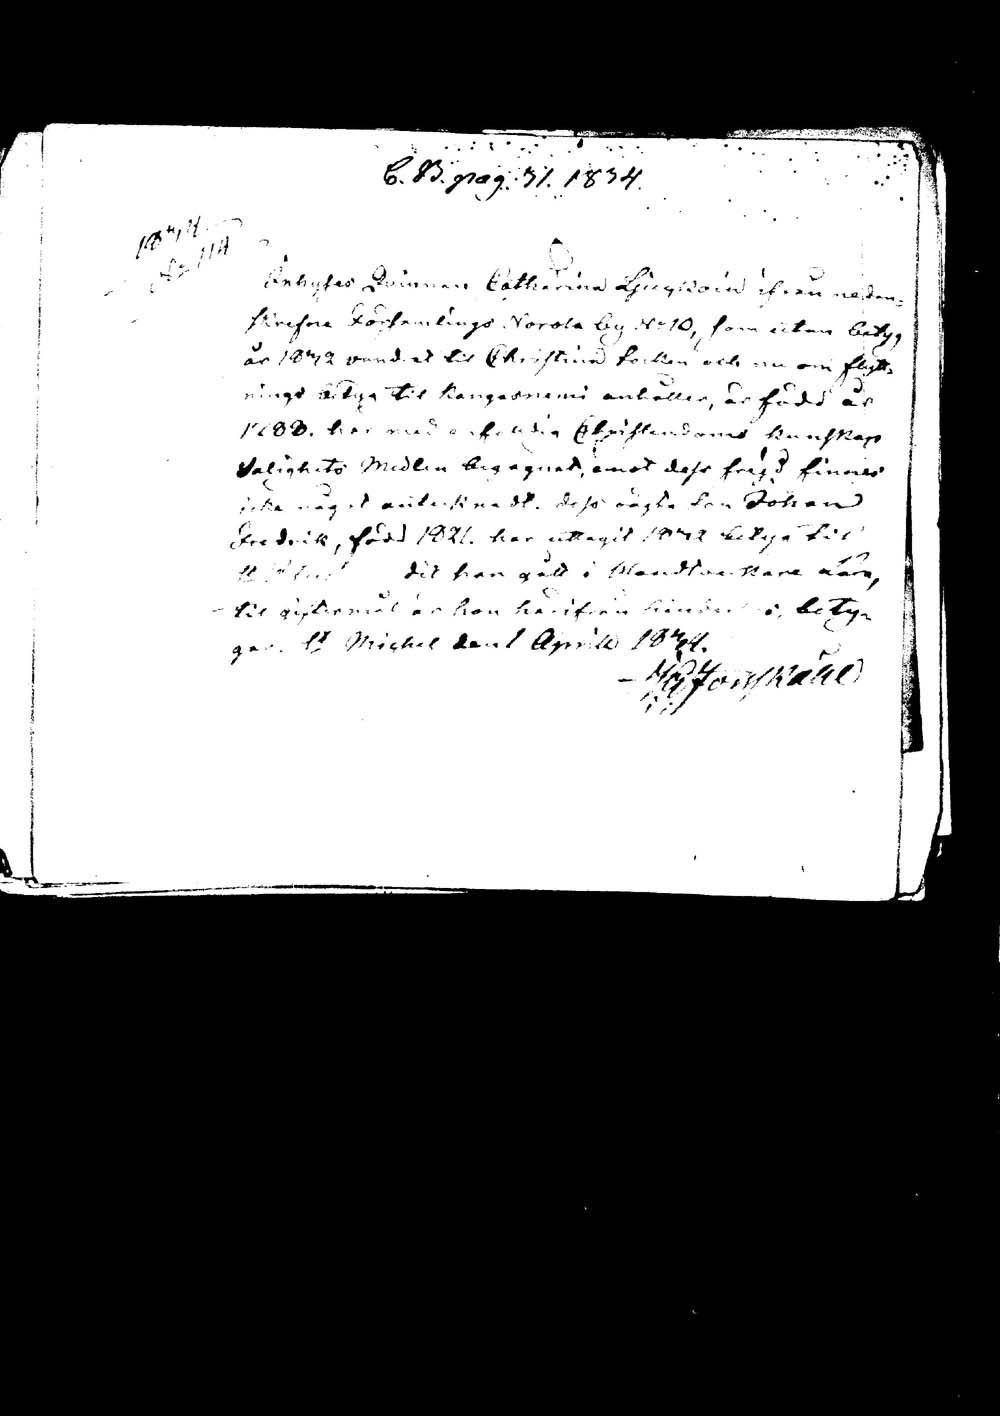 C. B. pag. 31. 1834.
1834
No 114
Enhyses Qvinnan Catharina ifrån nedan-
skrefne Församlings Norola by No 10, som utan betyg
år 1832 vandrat til Christina Socken och nu om flytt-
nings betyg til Kangasniemi anhåller, är född år
1788. har med Christendoms kunskap
Salighets Medlen begagnat, emot dess frägd finnes
icke något antecknadt. dess oägta Son Johan
Fredrik, född 1821. har uttagit 1832 betyg til
dit han gått i Handtverkare Lära,
til giftermål är hon härifrån hinderslös, bety-
gar. St Michel den 1 Aprill 1834.
Forsskåhl